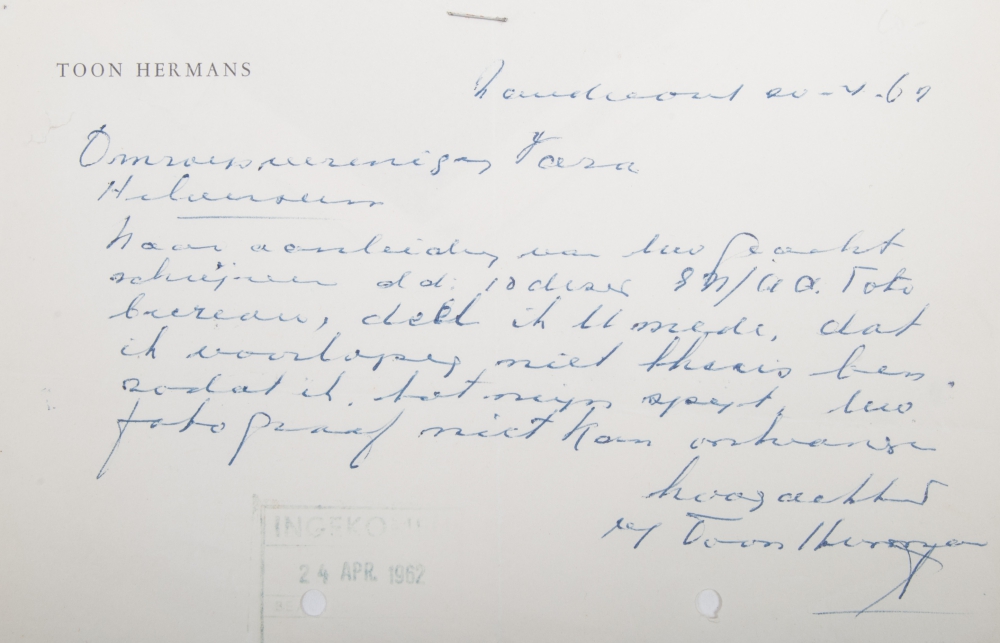 TOON HERMANS
20-4-62
Omroepvereniging Vara
Hilversum
Naar aanleiding van Uw geacht
schrijven dd. 10 dezer Foto
bureau, deel ik U mede, dat
ik voorlopig niet thuis ben
zodat ik, tot mijn spijt, Uw
fotograaf niet kan ontvangen
hoogachtend
Toon Hermans
INGEKOM
24 APR. 1962